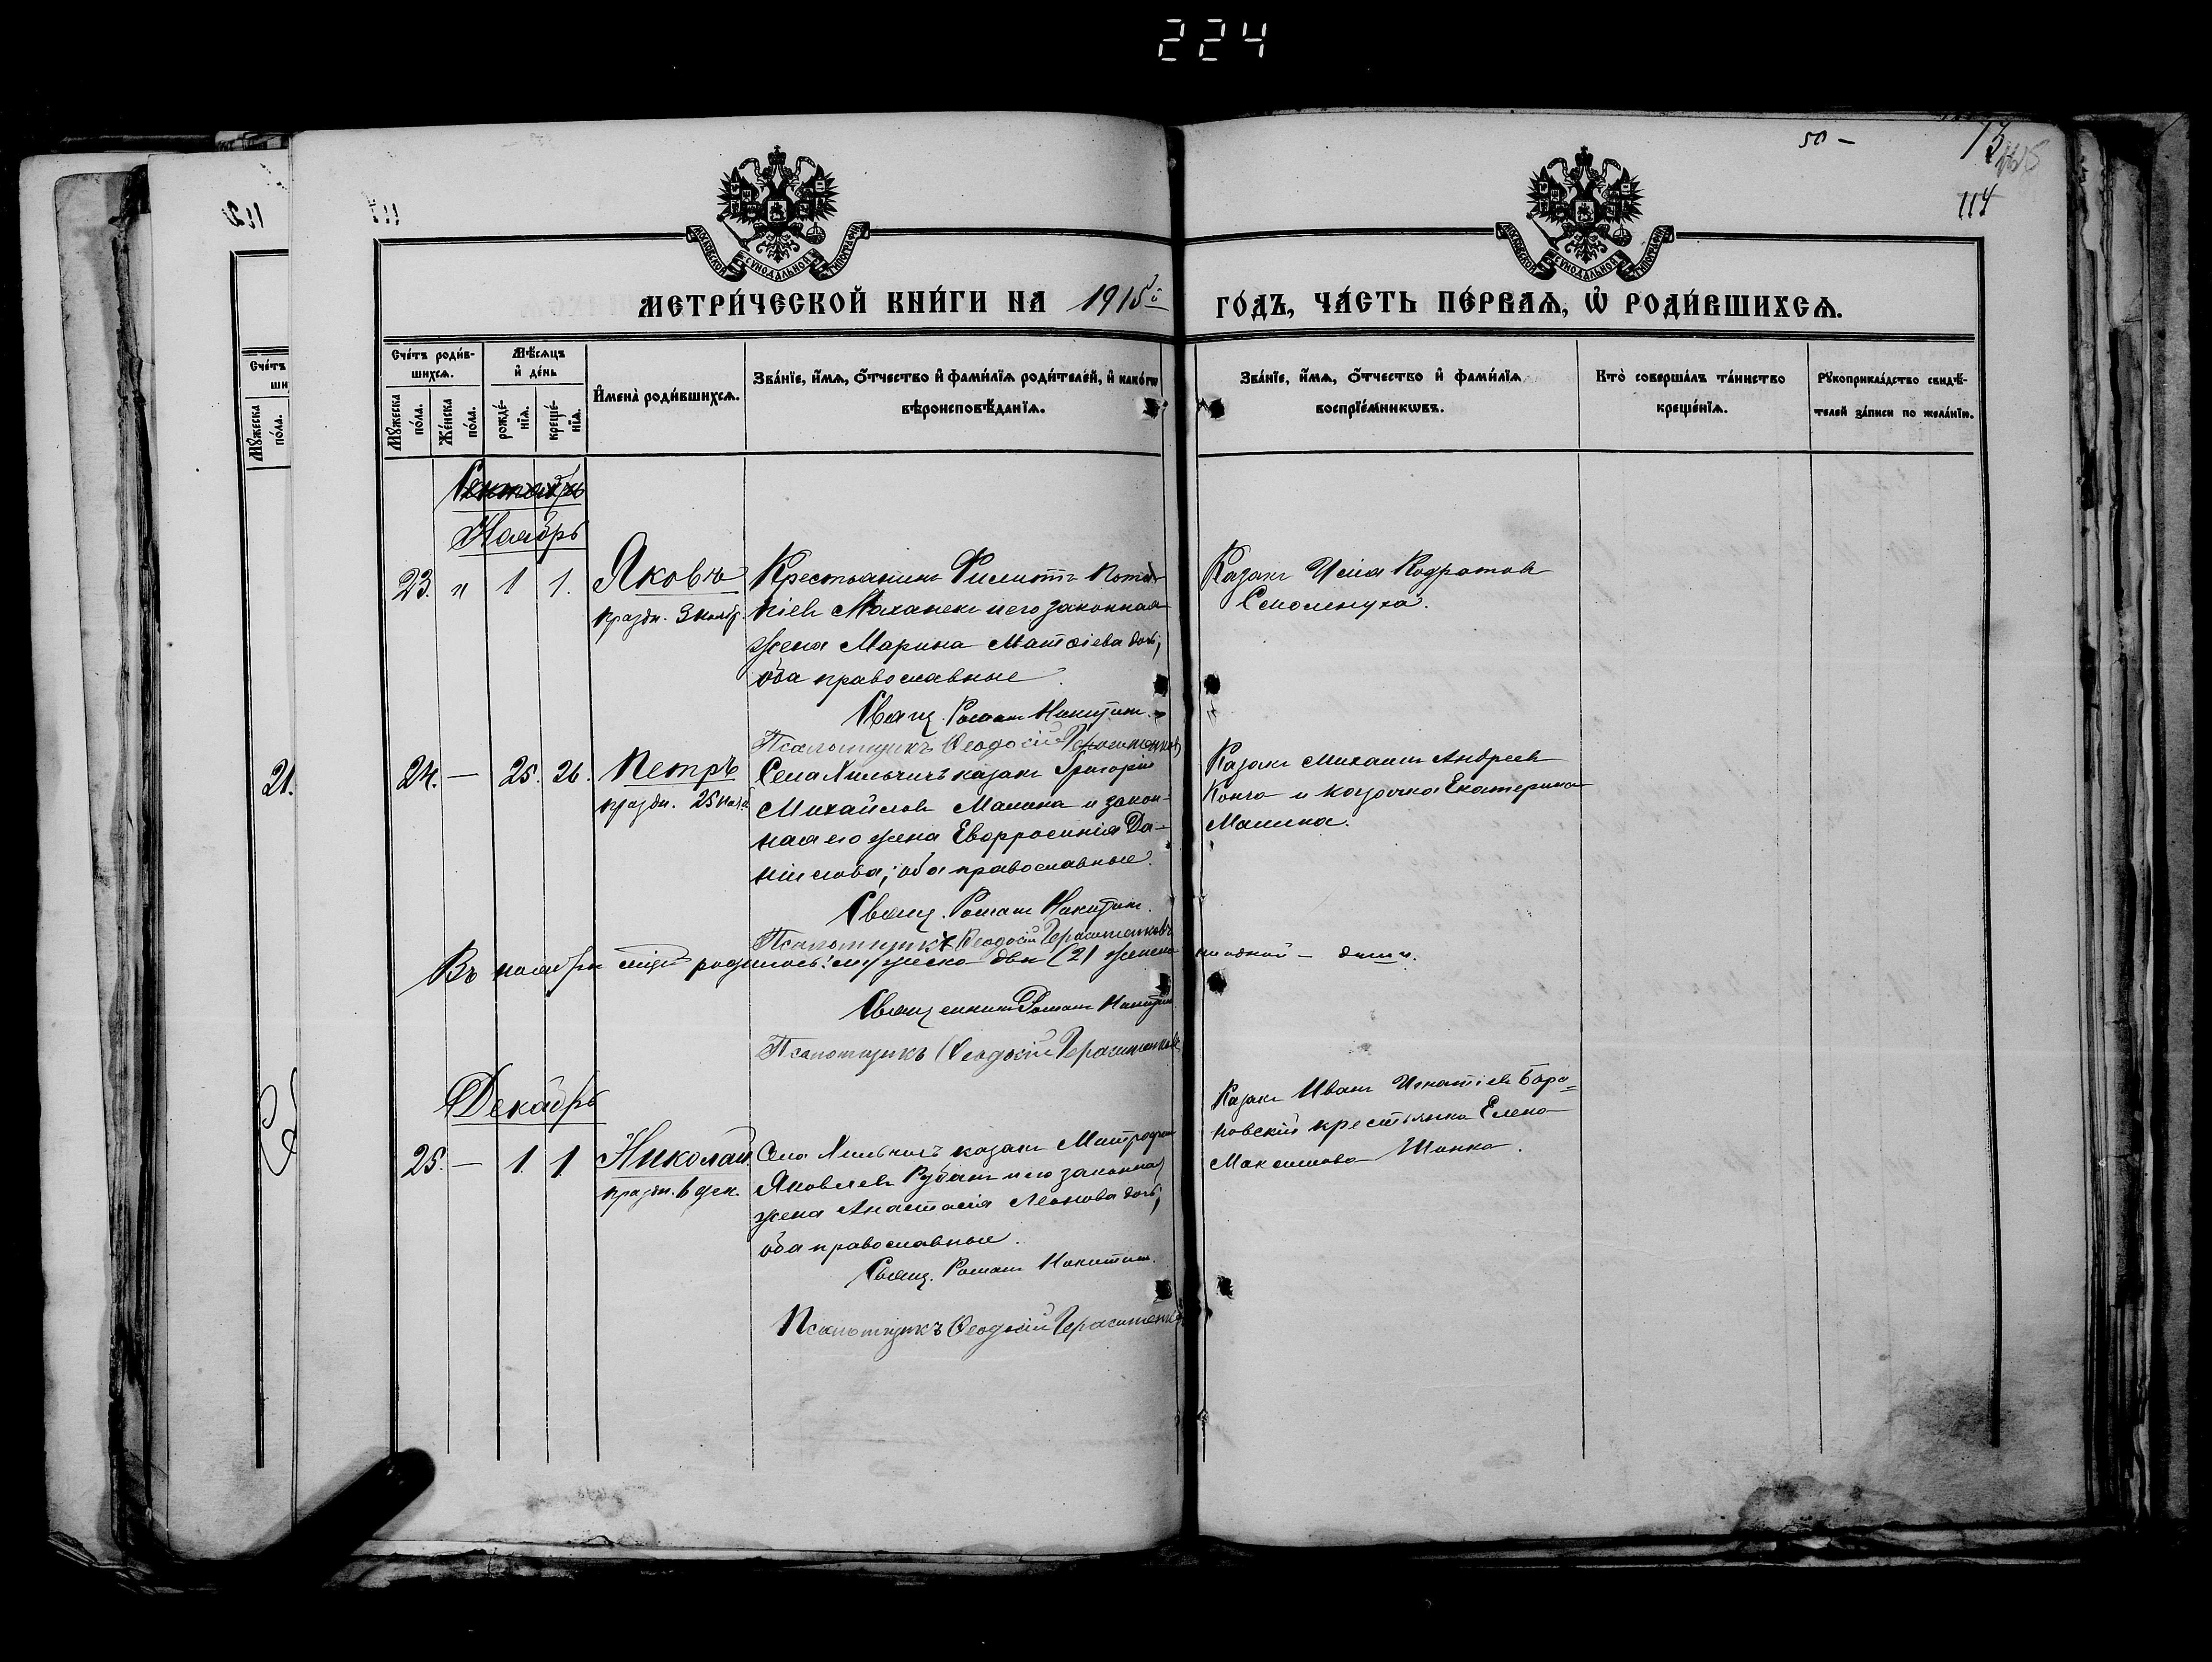 224
50 –
114
МЕТРИ́ЧЕСКОЙ КНИ́ГИ НА 1915й ГО́ДЪ, ЧА́СТЬ ПЕ́РВАѦ, Ѡ РОДИ́ВШИХСѦ.
Сче́тъ роди́в-
шихсѧ.
Мꙋ́жеска
по́ла.
Же́нска
по́ла.
Мѣ́сѧцъ
и҆ де́нь
рожде́-
нїѧ.
креще́-
нїѧ.
И҆мена̀ роди́вшихсѧ.
Зва́нїе, и҆́мѧ, ѻ҆́тчество и҆ фами́лїѧ роди́телей, и҆ како́гѡ
вѣроисповѣ́данїѧ.
Зва́нїе, и҆́мѧ, ѻ҆́тчество и҆ фами́лїѧ
воспрїе́мникѡвъ.
Кто̀ соверша́лъ та́инство
креще́нїѧ.
Рꙋкоприкла́дство свидѣ́-
телей за́писи по жела́нїю.
Сентябрь
Ноябрь
23. " 1 1. Яковъ
праздн. 9 нояб.
Крестьянинъ Филиппъ
Маханекъ и его законная
жена Марина Матѳіева дочь;
оба православные.
Свящ. Романъ Никитин.
Псаломщикъ Ѳеодосій Герасименковъ
Казакъ Кодратовъ
Смоленуха.
21.
24. — 25. 26. Петръ
праздн. 25 нояб.
Села казакъ Григорій
Михайловъ Малина и закон-
ная его жена Евфросинія Да-
ниилова; оба православные.
Свящ. Романъ Никитин.
Псаломщикъ Ѳеодосій Герасименковъ
Казакъ Михаилъ Андреевъ
Конча и казачка Екатерина
Малина.
Въ ноябрѣ родилось: мужеска два (2) женска ни одной –
Священникъ Романъ Никитин
Псаломщикъ Ѳеодосій Герасименковъ
Декабрь
25. — 1. 1. Николай
праздн. 6 дек.
Села казакъ Митрофан
Яковлевъ Рубанъ и его законная
жена Анастасія Леонова дочь;
оба православные.
Свящ. Романъ Никитин.
Псаломщикъ Ѳеодосій Герасименковъ
Казакъ Иванъ Игнатіевъ Бара=
новскій крестьянка Елена
Максимова Шинка.